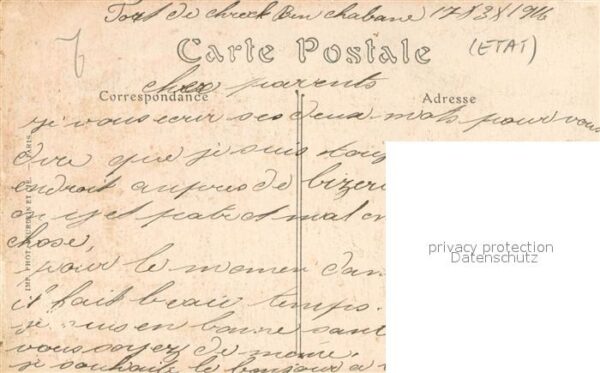 Fort de chreck Ben chabane 17 X 3 X 1916
6
(ETAT)
Carte Postale
cher parents
Correspondance
Adresse
je vous ecrir ses deux mots pour vous
dire que je suis
endroit aupres de bizer
on y et
et mal
chose,
pour le momen dan
il fait beau temps.
je suis en bonne sant
vous soyez de meme,
je souhaite le bonjour a
IMP. PHOT. NEURDEIN ET CIE. PARIS
privacy protection
Datenschutz